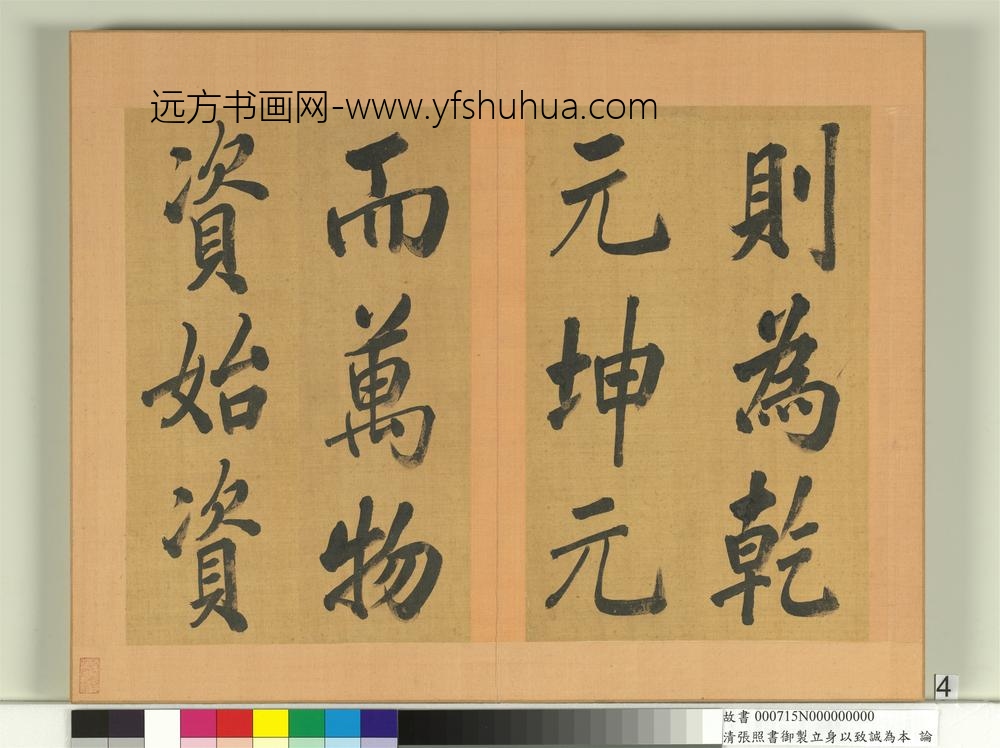 远方书画网-www.yfshuhua.com
則為乾
元坤元
而萬物
資始資
4
故書 000715N000000000
清張照書御製立身以致誠為本 論